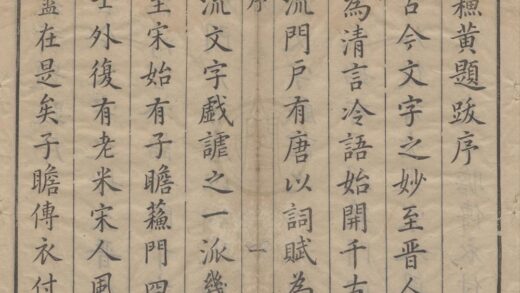 蘓黄題跋序
古今文字之妙至晋人
為清言冷語始開千古
流門戶有唐以詞賦為
序
一
流文字戲謔之一派幾
至宋始有子瞻蘓門四
士外復有老米宋人風
盡在是矣子瞻傳衣付